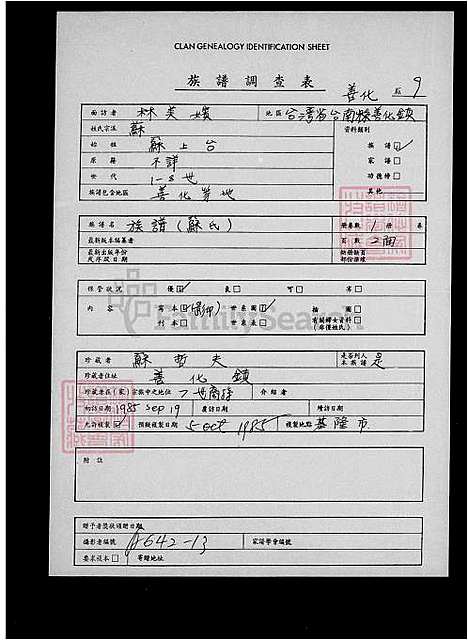 CLAN GENEALOGY IDENTIFICATION SHEET
族譜調查表
善化 9
面訪者 林美嬡 地區 台灣省台南縣善化鎮
姓氏宗派 蘇 資料類別
始祖 蘇上台 族譜 ✓
原籍 不詳 家譜
世代 1-8世 功德榜
族譜包含地區 善化等地 其他
族譜名 族譜(蘇氏) 冊卷數 1 冊 卷
最新版本編纂者 頁數 2面
最新出版年份及序攷日期
保管狀況 優 ✓ 良 可 劣
內容 寫本 ✓ 世系圖 ✓ 插圖
刊本 世系表 有關婦女資料(非僅姓氏)
FamilySearch
珍藏者 蘇哲夫 是否列入本族譜 是
珍藏者住址 善化鎮
珍藏者在(家)宗族中之地位 7世裔孫 介紹者
初訪日期 1985 Sep 19 複訪日期 續訪日期
允許複製 預擬複製日期 5 oct 1985 複製地點 基隆市
附註
贈予者獎狀頒贈日期
攝影者編號 A642-13 家譜學會編號
要求微本 寄贈地址